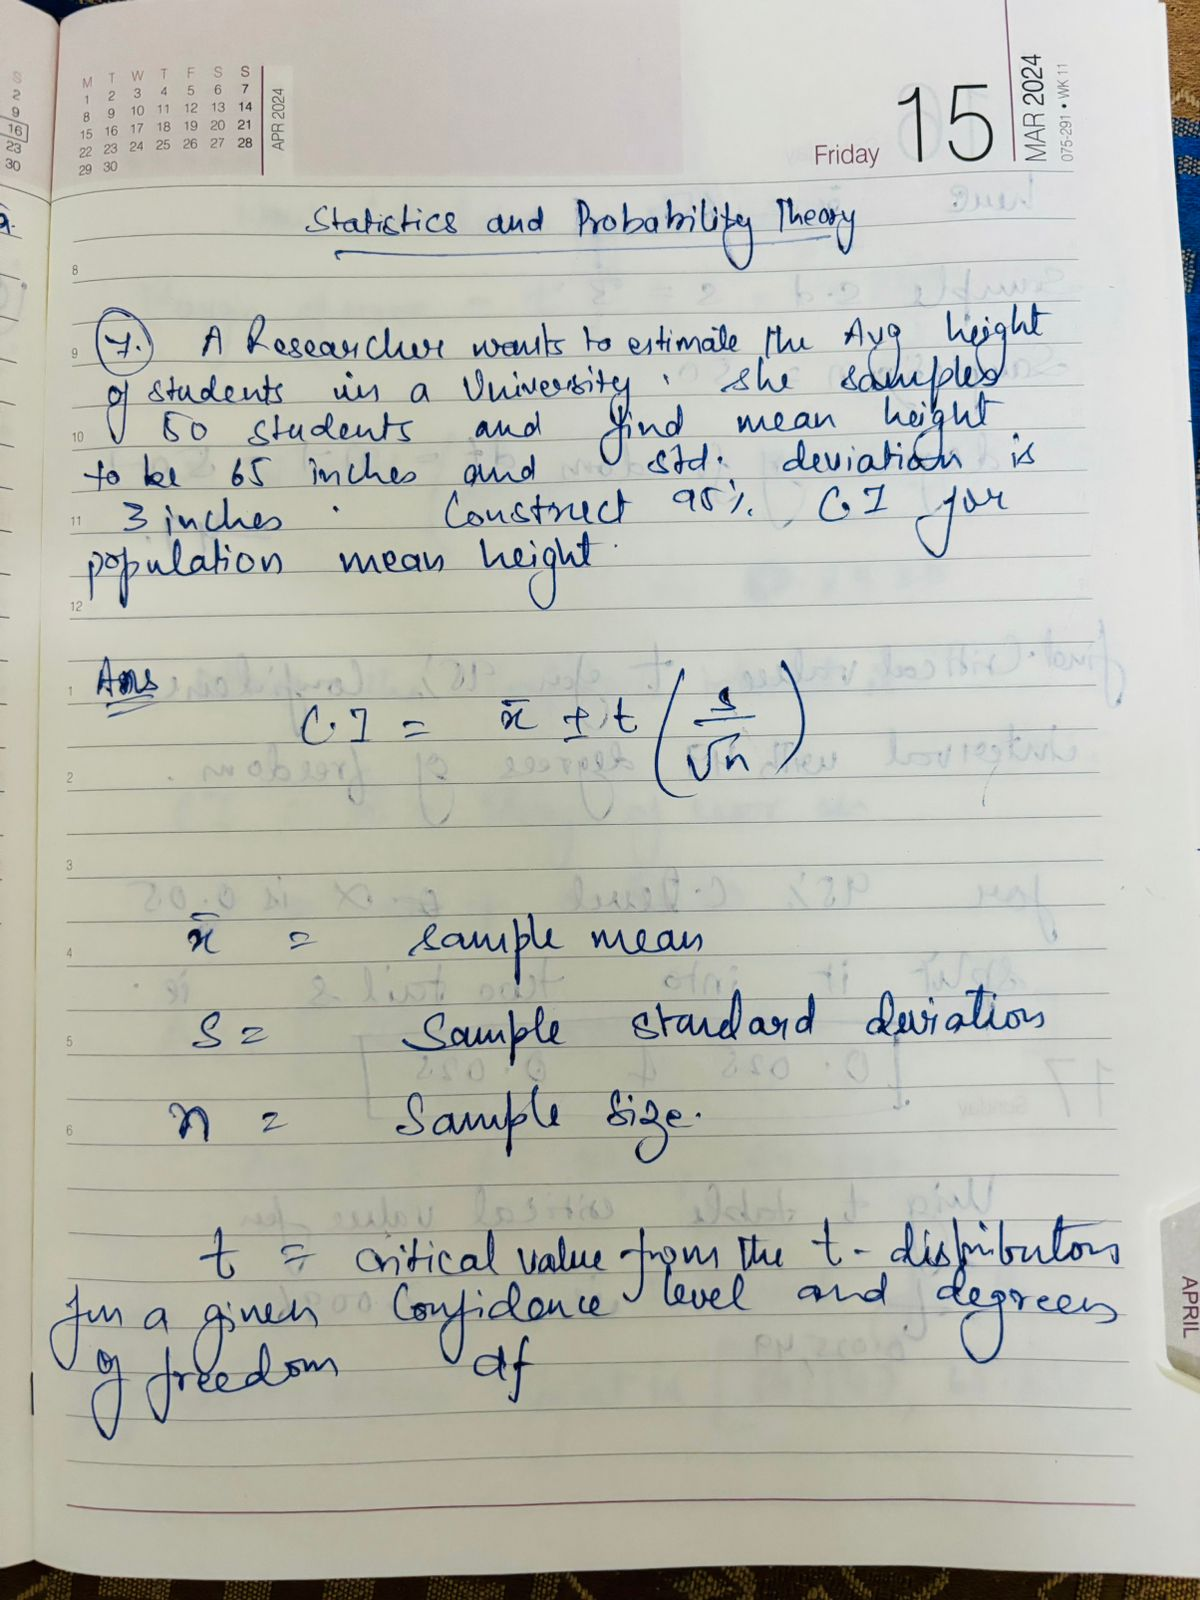 S
2
9
16
23
30
M T W T F S S
1 2 3 4 5 6 7
8 9 10 11 12 13 14
15 16 17 18 19 20 21
22 23 24 25 26 27 28
29 30
APR 2024
Friday 15
MAR 2024
075-291 • WK 11
Statistics and Probability Theory
8
9 7. A Researcher wants to estimate the Avg height
of students in a University. she samples
10 50 students and find mean height
to be 65 inches and std. deviation is
11 3 inches. Construct 95% C.I for
population mean height.
12
1 Ans
C.I = x̄ ± t (s/√n)
2
3
4 x̄ = sample mean
5 S = Sample standard deviation
6 n = Sample size.
t = critical value from the t-distribution
for a given Confidence level and degrees
of freedom df
APRIL